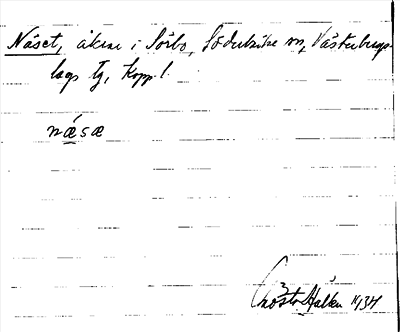 Näset, åkrar i Sörbo, Söderbärke sn, Västerbergs-
lags tg, Kopp. l.
næsæ
Gösta Hallén 1934